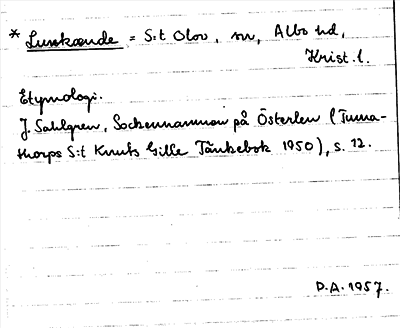 * Lunkende = S:t Olov, sn, Albo hd,
Krist. l.
Etymologi.
J. Sahlgren, Sockennamnen på Österlen (Tuma-
thorps S:t Knuts Gille Tänkebok 1950), s. 12.
D.A. 1957.